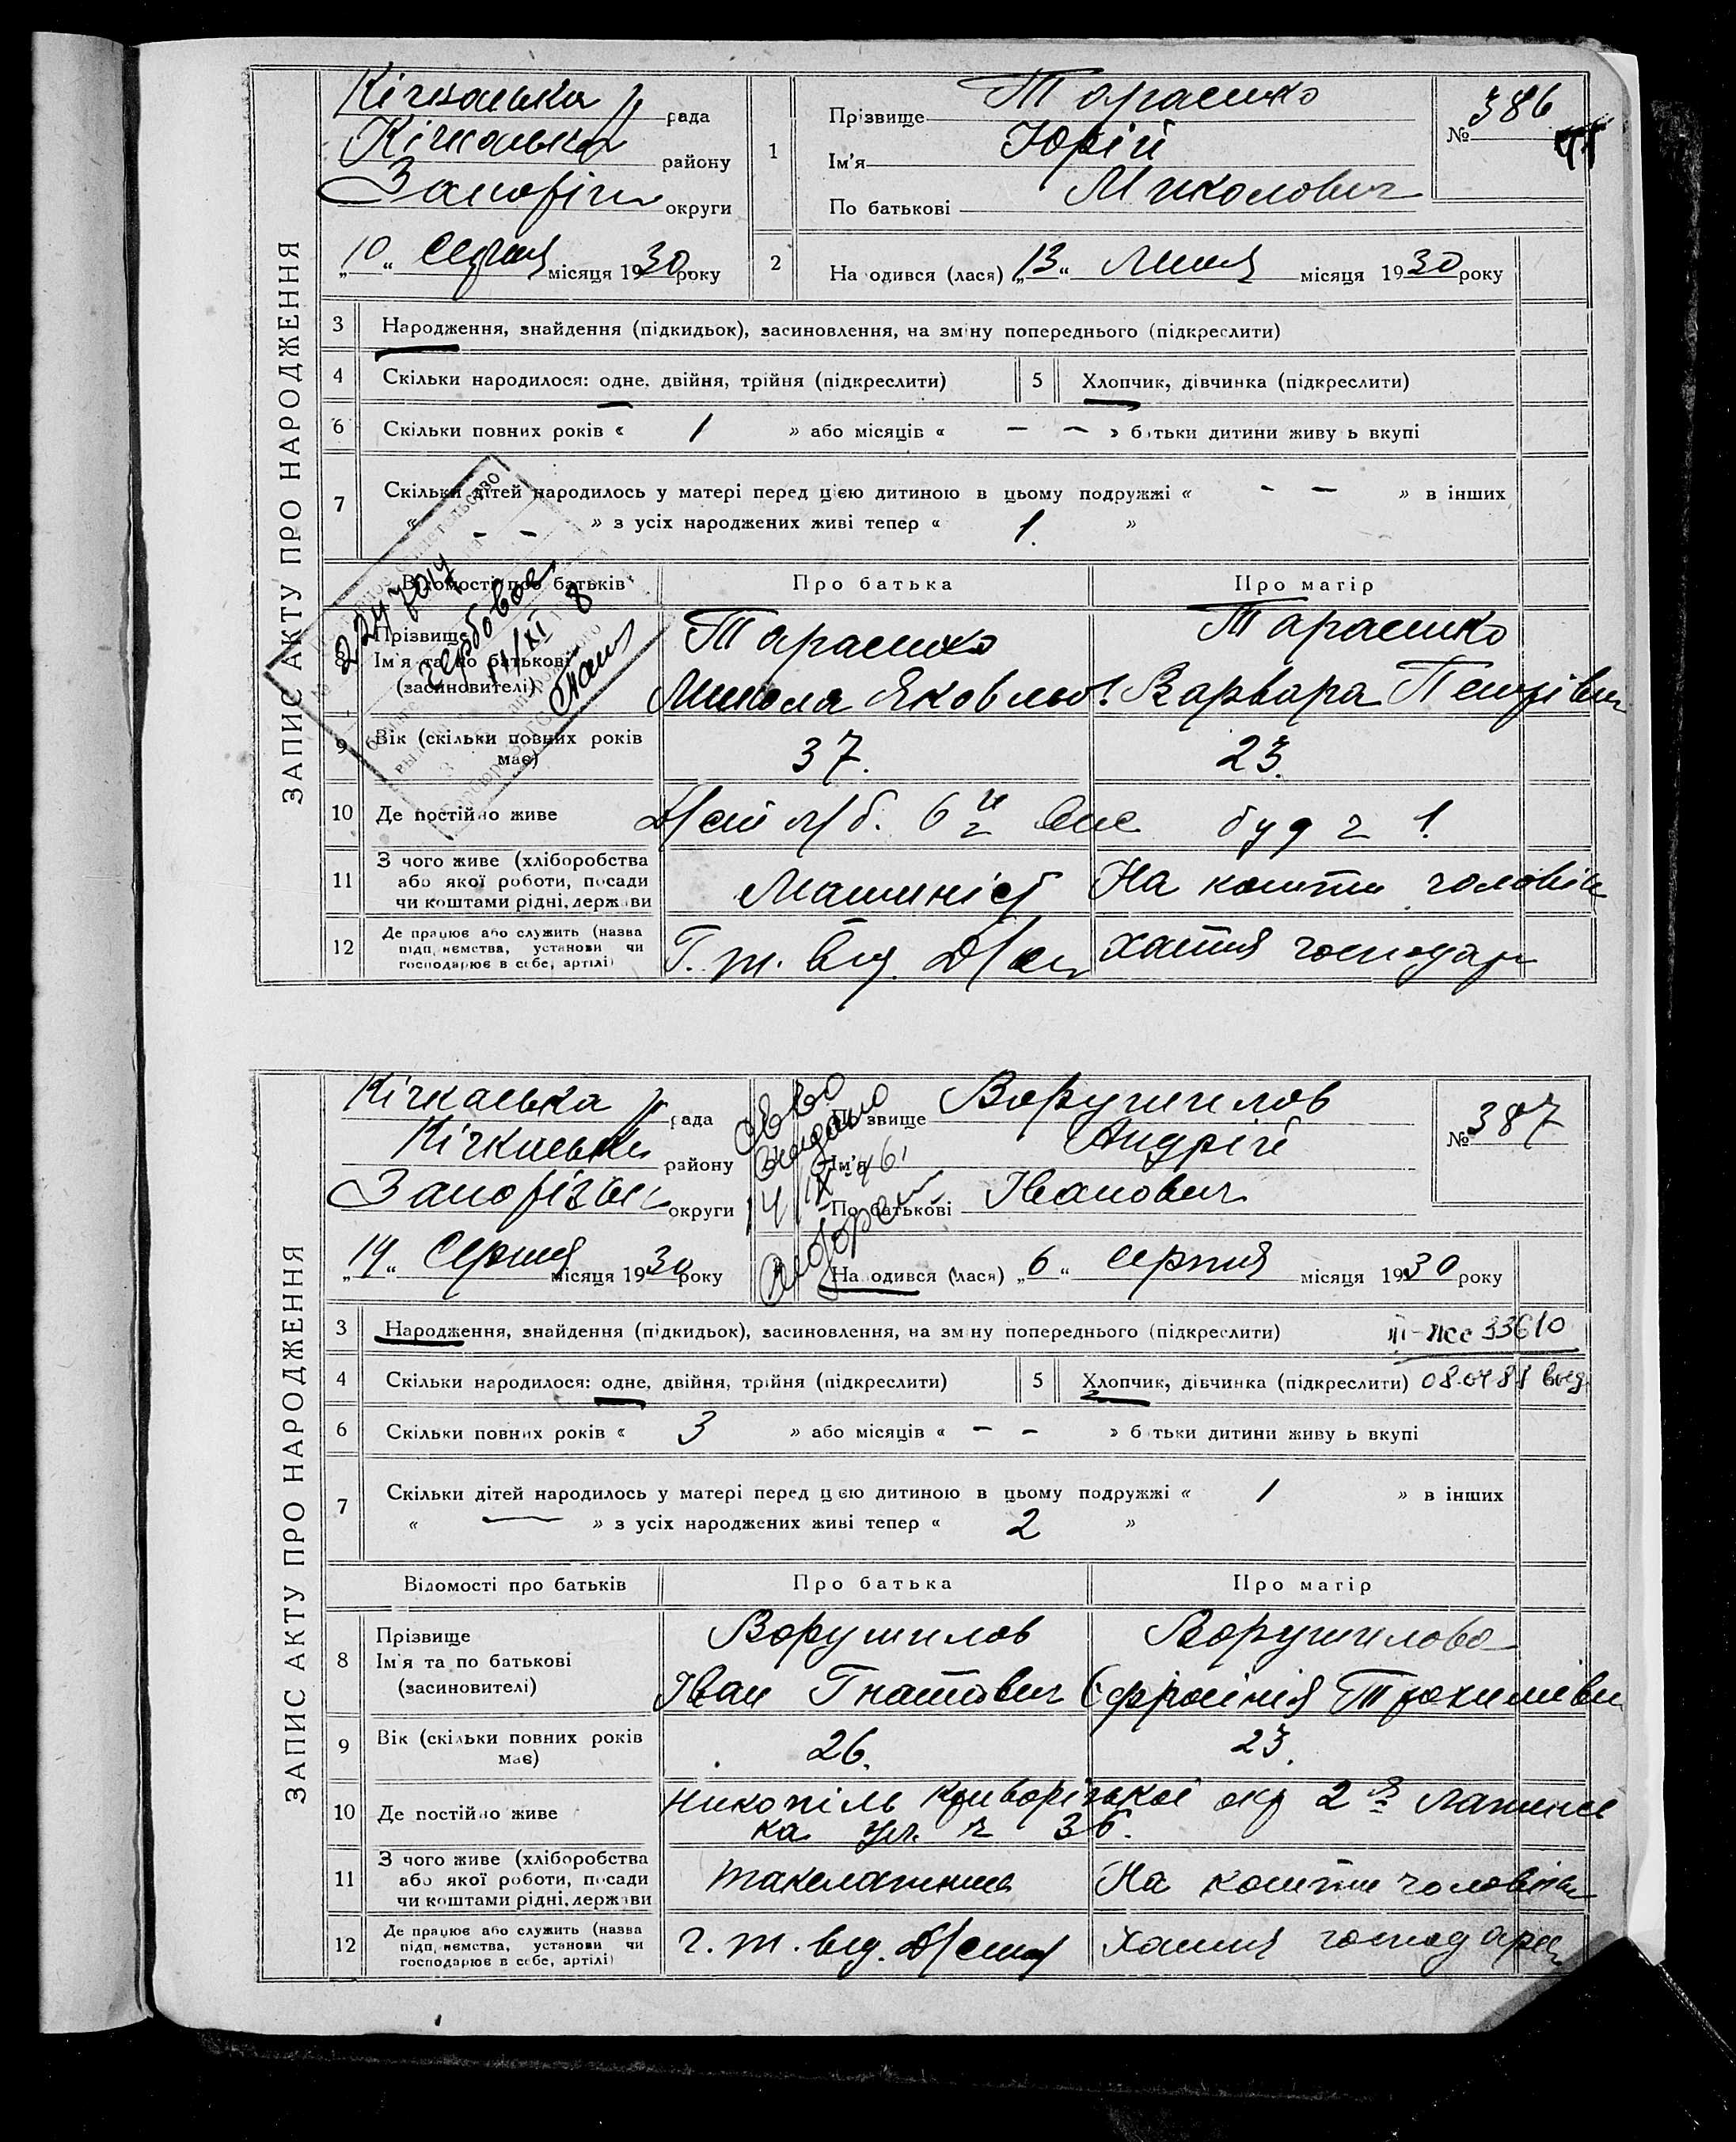 ЗАПИС АКТУ ПРО НАРОДЖЕННЯ
Кічкаська рада
Кічкаськ району
округи
„10“ Серпня місяця 1930 року
1
Прізвище Тарасенко
Ім'я Юрій
По батькові Миколович
№ 386
2
На одився (лася) „13“ Липня місяця 1930 року
3 Народження, знайдення (підкидьок), засиновлення, на зміну попереднього (підкреслити)
4 Скільки народилося: одне, двійня, трійня (підкреслити)
5 Хлопчик, дівчинка (підкреслити)
6 Скільки повних років « 1 » або місяців « – – » батьки дитини живу ь вкупі
7 Скільки дітей народилось у матері перед цією дитиною в цьому подружжі « – – » в інших
« – – » з усіх народжених живі тепер « 1. »
Відомості про батьків
Про батька
Про матір
8 Прізвище
Ім'я та по батькові
(засиновителі)
Тарасенко
Микола Яковльов.
Тарасенко
Варвара
9 Вік (скільки повних років має)
37.
23.
10 Де постійно живе
буд ч 1.
11 З чого живе (хліборобства
або якої роботи, посади
чи коштами рідні, держави
Машиніст
На кошти чоловік
12 Де працює або служить (назва
підприємства, установи чи
господарює в себе, артілі)
Г. т. від.
хатня господар
ЗАПИС АКТУ ПРО НАРОДЖЕННЯ
Кічкаська рада
Кічкаськ району
округи
„14“ Серпня місяця 1930 року
Прізвище Ворушилов
Ім'я Андрій
По батькові Іванович
№ 387
На одився (лася) „6“ серпня місяця 1930 року
3 Народження, знайдення (підкидьок), засиновлення, на зміну попереднього (підкреслити)
33610
4 Скільки народилося: одне, двійня, трійня (підкреслити)
5 Хлопчик, дівчинка (підкреслити)
6 Скільки повних років « 3 » або місяців « – – » б тьки дитини живу ь вкупі
7 Скільки дітей народилось у матері перед цією дитиною в цьому подружжі « 1 » в інших
« — » з усіх народжених живі тепер « 2 »
Відомості про батьків
Про батька
Про матір
8 Прізвище
Ім'я та по батькові
(засиновителі)
Ворушилов
Іван Гнатович
Ворушилова
Єфросінія
9 Вік (скільки повних років має)
26.
23.
10 Де постійно живе
Никопіль Криворізької окр 2
ка ул. ч 36.
11 З чого живе (хліборобства
або якої роботи, посади
чи коштами рідні, держави
такелажник
На кошти чоловіка
12 Де працює або служить (назва
підприємства, установи чи
господарює в себе, артілі)
г. т. від.
хатня господар